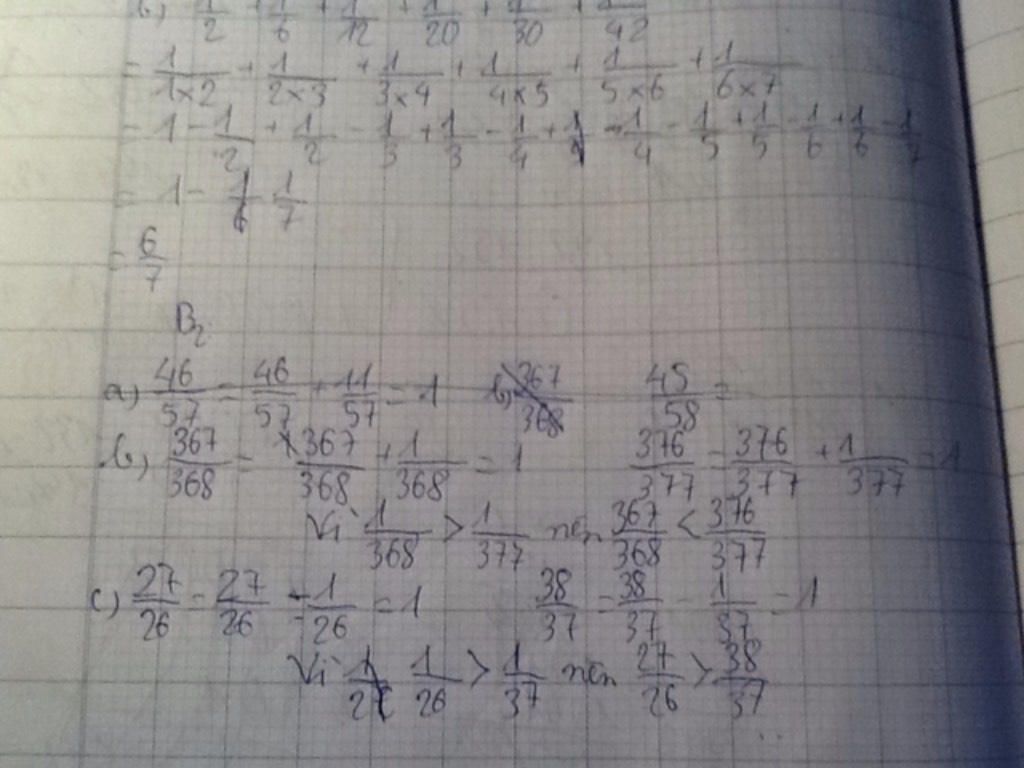 b) 1/2 + 1/6 + 1/12 + 1/20 + 1/30 + 1/42
= 1/1×2 + 1/2×3 + 1/3×4 + 1/4×5 + 1/5×6 + 1/6×7
= 1 - 1/2 + 1/2 - 1/3 + 1/3 - 1/4 + 1/4 - 1/4 - 1/5 + 1/5 - 1/6 + 1/6 - 1/7
= 1 - 1/7
= 6/7
B2
a) 46/57 = 46/57 + 11/57 = 1 b) 367/368 45/58 =
b) 367/368 = 367/368 + 1/368 = 1 376/377 = 376/377 + 1/377 = 1
Vì 1/368 > 1/377 nên 367/368 < 376/377
c) 27/26 = 27/26 - 1/26 = 1 38/37 = 38/37 - 1/37 = 1
Vì 1/26 > 1/37 nên 27/26 > 38/37